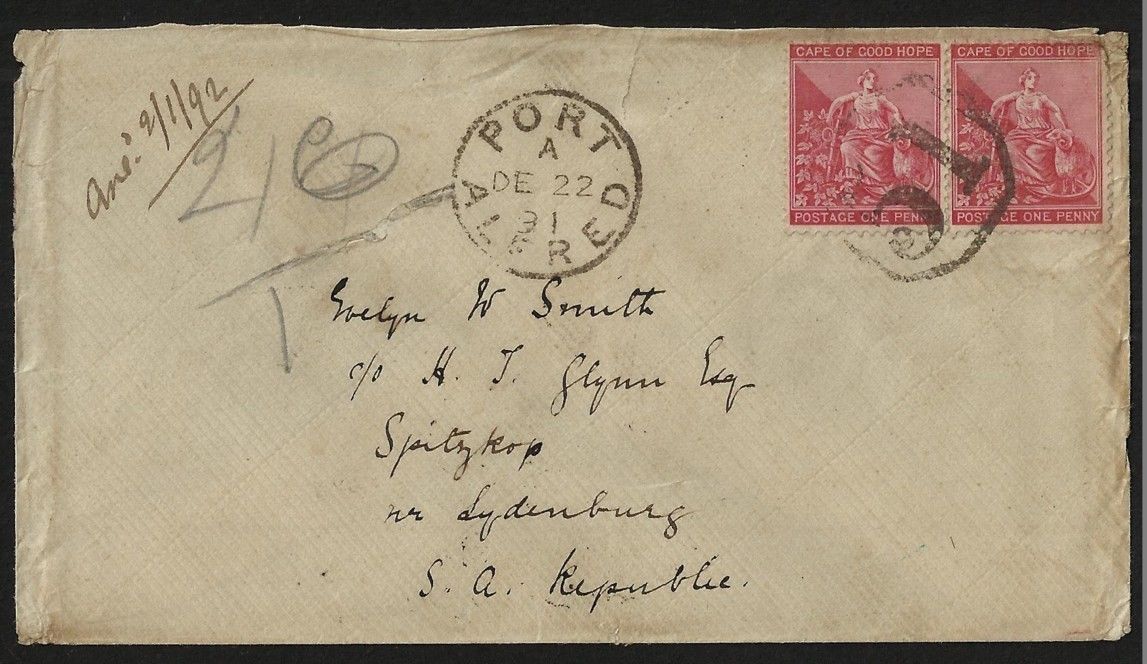 Ans.d 2/1/92
2/6
T
PORT ALFRED
A
DE 22
91
CAPE OF GOOD HOPE
POSTAGE ONE PENNY
CAPE OF GOOD HOPE
POSTAGE ONE PENNY
Evelyn W Smith
c/o H. T. Glynn Esq
Spitzkop
nr Lydenburg
S. A. Republic.